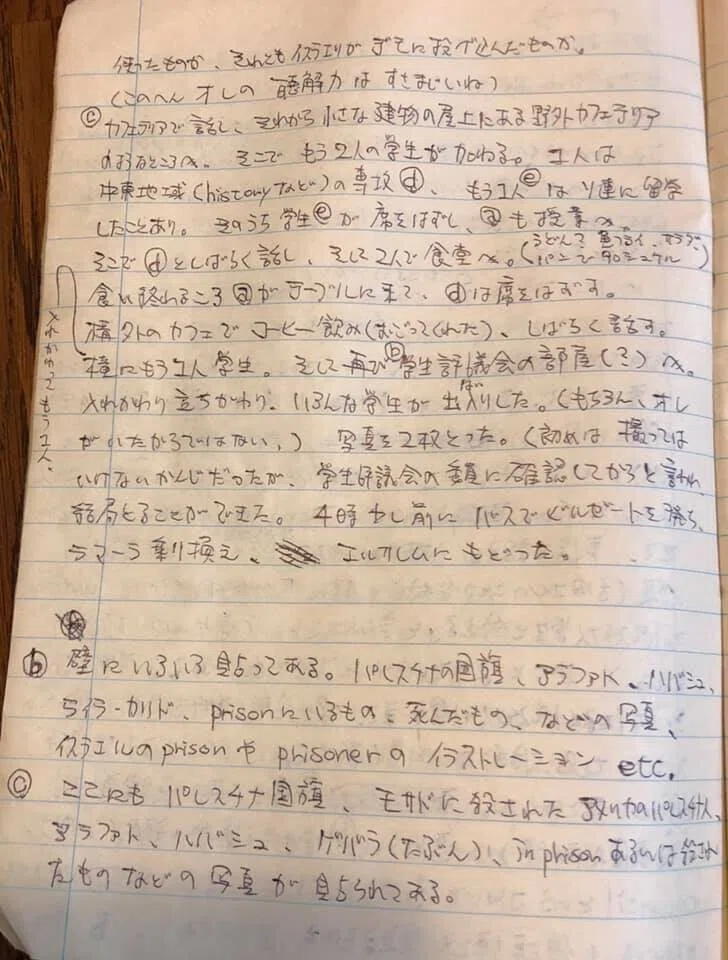 使ったものか、それともイスラエリがすでに投げ込んだものか。
(このへんオレの聴解力はすさまじいね)
ⓒ カフェテリアで話し、それから小さな建物の屋上にある野外カフェテリア
のようなところへ。そこでもう2人の学生が加わる。1人は
中東地域(historyなど)の専攻ⓓ、もう1人ⓔはソ連に留学
したことあり。そのうち学生ⓔが席をはずし、ⓐも授業へ。
そこでⓓとしばらく話し、そして2人で食堂へ。(うどん?
パンで90シェケル)
食い終わるころⓐがテーブルに来て、ⓓは席をはずす。
構外のカフェでコーヒー飲み(おごってくれた)、しばらく話す。
横にもう1人学生。そして再びⓑ学生評議会の部屋(?)へ。
入れかわり立ちかわり、いろんな学生が出入りした。(もちろん、オレ
がいたからではない。) 写真を2枚とった。(初めは撮っては
いけないかんじだったが、学生評議会の委員に確認してからと言われ、
結局とることができた。4時少し前にバスでビルゼートを発ち、
ラマーラ乗り換え、エルサレムにもどった。
入れかわってもう1人、
ⓑ 壁にいろいろ貼ってある。パレスチナの国旗、アラファト、ハバシュ、
ライラ・カリド、prisonにいるもの、死んだもの、などの写真、
イスラエルのprisonやprisonerのイラストレーション etc.
ⓒ ここにもパレスチナ国旗、モサドに殺されたアメリカのパレスチナ人、
アラファト、ハバシュ、ゲバラ(たぶん)、in prisonあるいは殺され
たものなどの写真が貼られてある。